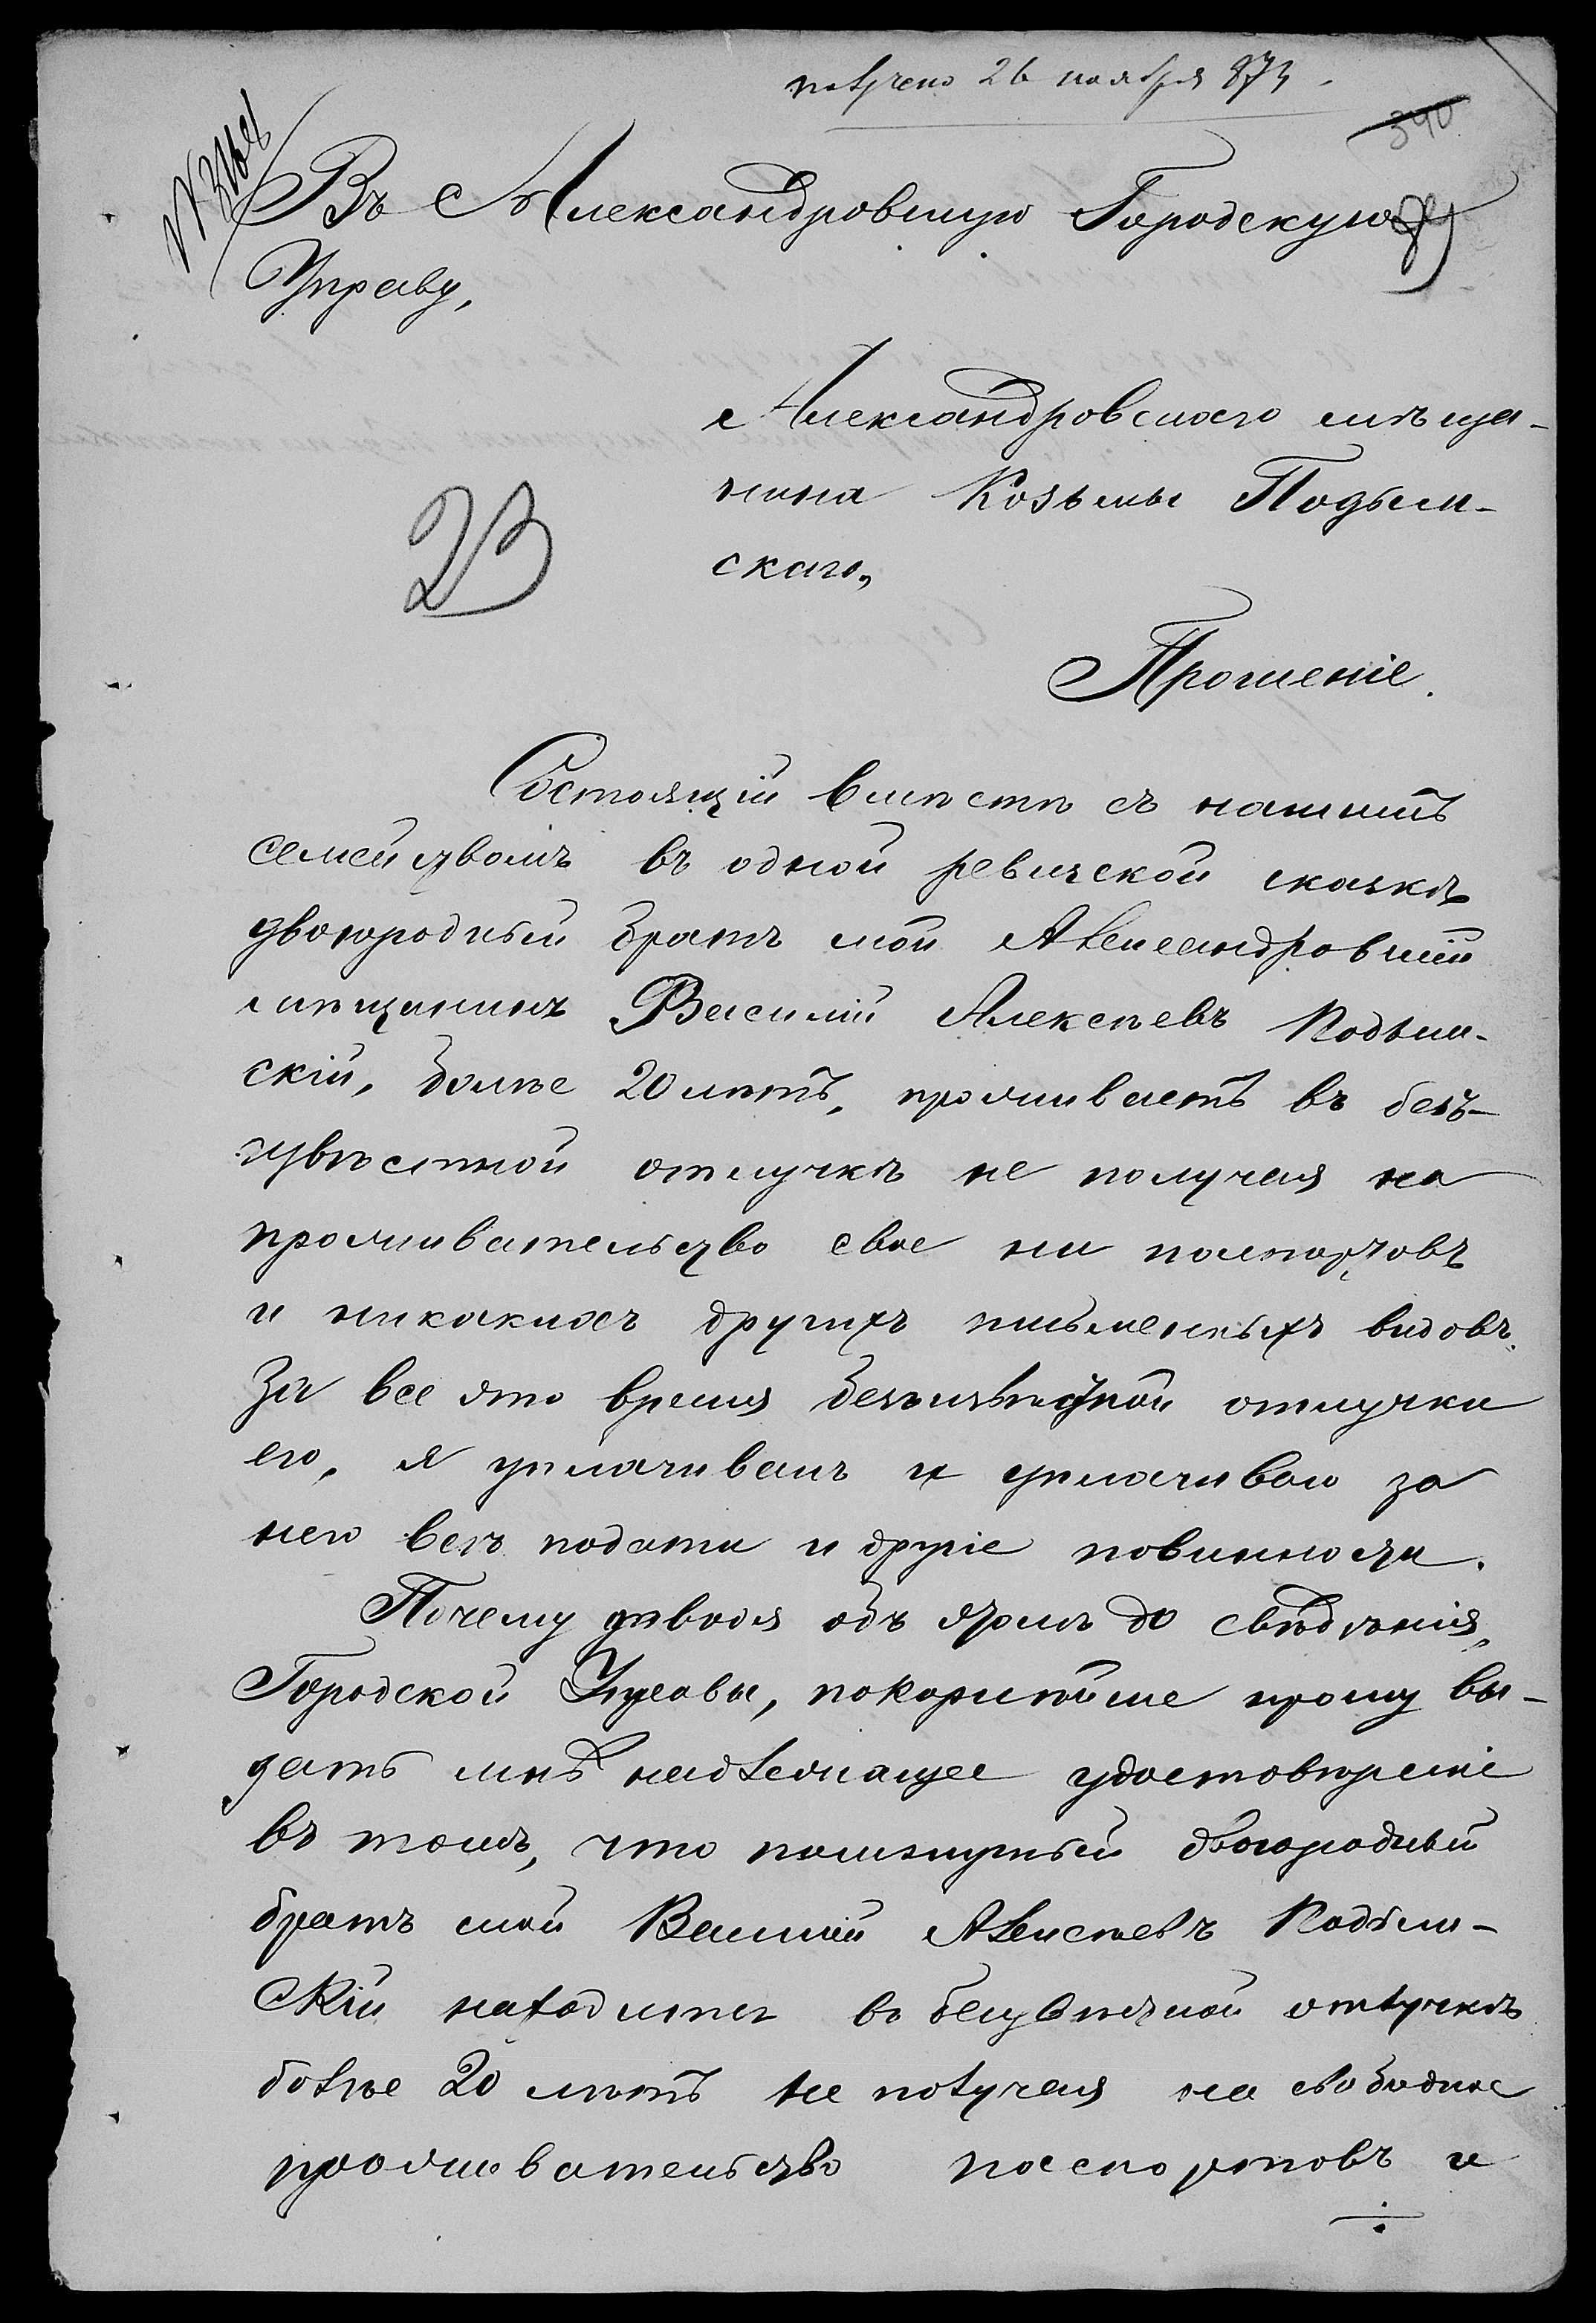 получено 26 ноября 874
390
№ 3168
Въ Александровскую Городскую
Управу,
Александровскаго мѣща-
нина Козьмы Подъим-
скаго,
23
Прошеніе.
Состоящій вмѣстѣ съ нашимъ
семействомъ въ одной ревизской сказкѣ
двоюродный братъ мой Александровскій
мѣщанинъ Василій Алексѣевъ Подъим-
скій, болѣе 20 лѣтъ, проживаетъ въ безъ-
извѣстной отлучкѣ не получая на
проживательство свое ни паспортовъ
и никакихъ другихъ письменныхъ видовъ.
За все это время безъизвѣстной отлучки
его, я уплачивалъ и уплачиваю за
него всѣ подати и другіе повинности.
Почему доводя объ этомъ до свѣдѣнія,
Городской Управы, покорнѣйше прошу вы-
дать мнѣ надлежащее удостовѣреніе
въ томъ, что помянутый двоюродный
братъ мой Василій Алексѣевъ Подъим-
скій находится въ безизвѣстной отлучкѣ
болѣе 20 лѣтъ не получая на свободное
проживательство паспортовъ и